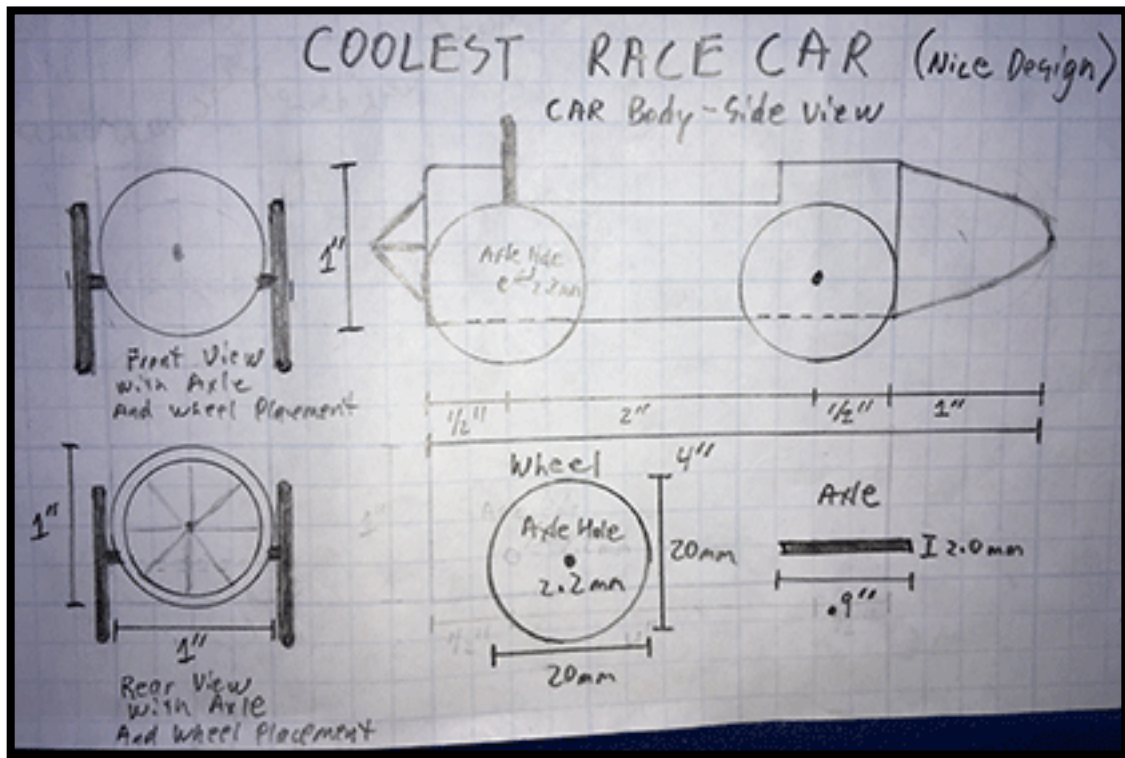 COOLEST RACE CAR (Nice Design)
CAR Body - Side View
1"
Axle Hole
2.2mm
Front View
with Axle
And Wheel Placement
1/2" 2" 1/2" 1"
4"
1"
1"
Rear View
with Axle
And Wheel Placement
Wheel
Axle Hole
2.2mm
20mm
20mm
Axle
2.0mm
.9"